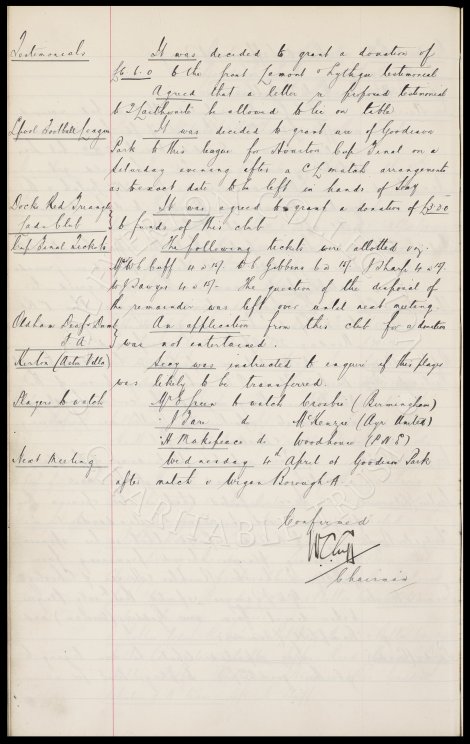 Testimonials It was decided to grant a donation of
£6.6.0 to the Grant Lamont & Lythgoe testimonial
Agreed that a letter re proposed testimonial
to J Laithwaite be allowed to lie on table
L'pool Football League It was decided to grant use of Goodison
Park to this league for Houston Cup Final on a
Saturday evening after a CL match arrangements
as to exact date to be left in hands of Secy
Docks Red Triangle It was agreed to grant a donation of £3-3-0
Lads Club to funds of this club
Cup Final Tickets The following tickets were allotted viz.
Mr W C Cuff 4 @ 15/- W C Gibbins 6 @ 15/- J Sharp 4 @ 15/-
W J Sawyer 4 @ 15/- The question of the disposal of
the remainder was left over until next meeting.
Oldham Deaf & Dumb An application from this club for a donation
F A was not entertained.
Kirton (Aston Villa) Secy was instructed to enquire if this player
was likely to be transferred.
Players to watch Mr E Green to watch Crosbie (Birmingham)
J Fare do McKenzie (Ayr United)
H Makepeace do Woodhouse (P N E)
Next Meeting Wednesday 4th April at Goodison Park
after match v Wigan Borough A.
Confirmed
W C Cuff
Chairman
CHARITABLE TRUST